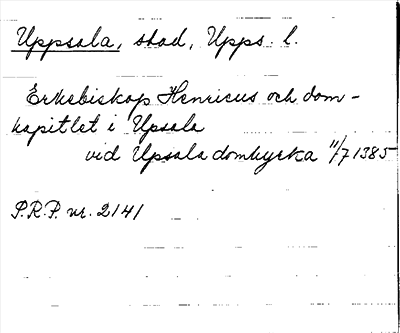 Uppsala, stad, Upps. l.
Erkebiskop Henricus och dom-
kapitlet i Upsala
vid Upsala domkyrka 11/7 1385
P.R.P. nr. 2141